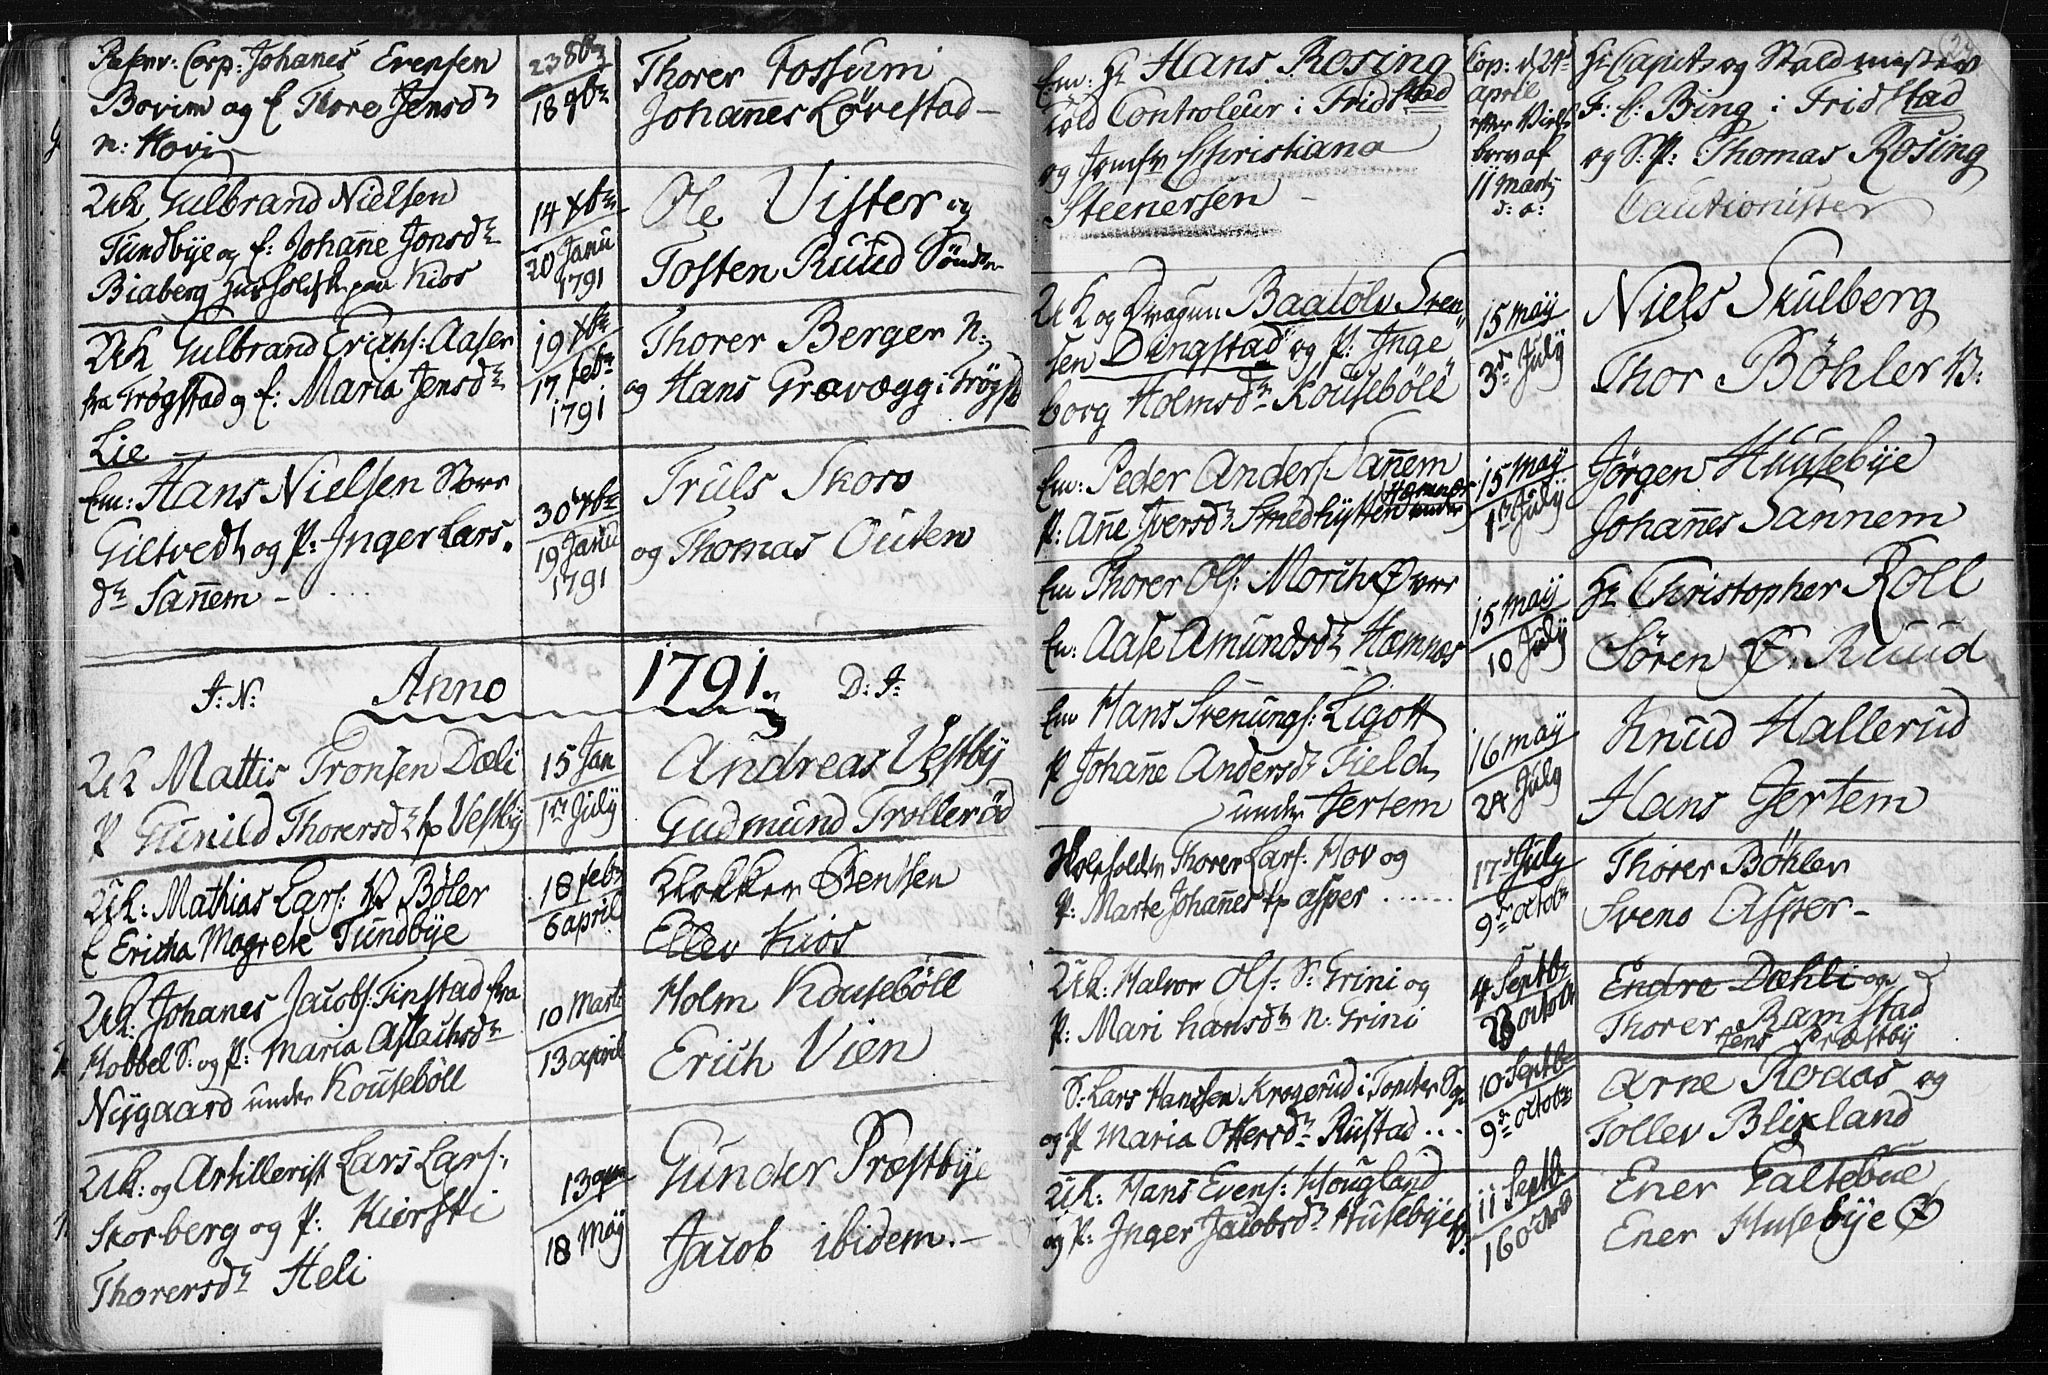 Reserv: Corp: Johanes Evensen
Bovim og E Thore Jensdr
n: Hovi
23 8br
18 9br
Thorer Fossum
Johañes Løvestad —
UK Gulbrand Nielsen
Tundbye og E: Johañe Jonsdr
Biaberg paa Kios
14 Xbr
20 Janu
1791
Ole Vister og
Tosten Ruud Søndr
UK Gulbrand Erichs: Aaser
fra Trøgstad og E: Maria Jensdr
Lie
19 Xbr
17 febr
1791
Thorer Berger N:
og Hans Grøvægg i Trøgst
Em: Hans Nielsen Store
Giltvedt og P: Inger Lars
dr Sañem —
30 Xbr
19 Janu
1791
Truls Skoro
og Thomas Outen
J: N: Anno 1791. D: J:
UK Mattis Tronsen Dæli
P Gunild Thorersdr Vestby
15 Jan
1st July
Andreas Vestby
Gudmund Trollerød
UK: Mathias Lars: V Bøler
E Ericha Magrete Tundbye
18 febr
6 april
Klokker Bentsen
Ellev Kios
UK: Johanes Jacobs: Finstad fra
Hobbel S: og P: Maria Aslachsdr
Nygaard under Kousebøll
10 Marti
13 april
Holm Kousebøll
Erich Vien
UK: og Artillerist Lars Lars:
Skorberg og P: Kiersti
Thorersdr Heli
13 apr
18 May
Gunder Præstbye
Jacob ibidem. —
Em: Hr Hans Rosing
Told Controleur i Fridstad
og Jomfr Christiana
Steenersen —
Cop: d 24
April
efter
brev af
11 Marty
d: a:
Hr Capit: og Staldmester
F: C: Bing i Fridstad
og S: P: Thomas Rosing
Cautionister
UK og Dragun Baatolv Sven„
sen Dingstad og P: Inge
borg Holmsdr Kousebøle
15 may
3 July
Niels Skulberg
Thor Bøhler V:
Em: Peder Anders: Sañem
P: Añe Iversdr Smedhytten under
Hæmnæs
15 may
1st July
Jørgen Huusebye
Johañes Sannem
Em Thorer Ols: Morch Øvre
Em: Aase Amundsdr Hæmnæs
15 may
10 July
Hr Christopher Roll
Søren Ø: Ruud
Em Hans Svenungs: Ligott
P Johañe Andersdr Field
under Jertem
16 may
24 July
Knud Hallerud
Hans Gertem
Thorer Lars: Hov og
P: Marte Johañes asper
17 July
9 octobr
Thorer Bøhler
Sveno Asper —
UK: Halvor Ols: S: Grini og
P: Mari hansdr N: Grini
4 Septbr
octobr
Endre Dæhli og
Thorer Ramstad
Jens Præstby
S: Lars Hansen Krogerud i Tomter
og P Maria Ottersdr Rustad
10 Septbr
9 octobr
Arne Roaas og
Tollev Blixland
UK: Hans Evens: Hougland
og P: Inger Jacobsdr Husebye V:
11 Septbr
16 Octobr
Ener Galtebue
Ener Husebye Ø